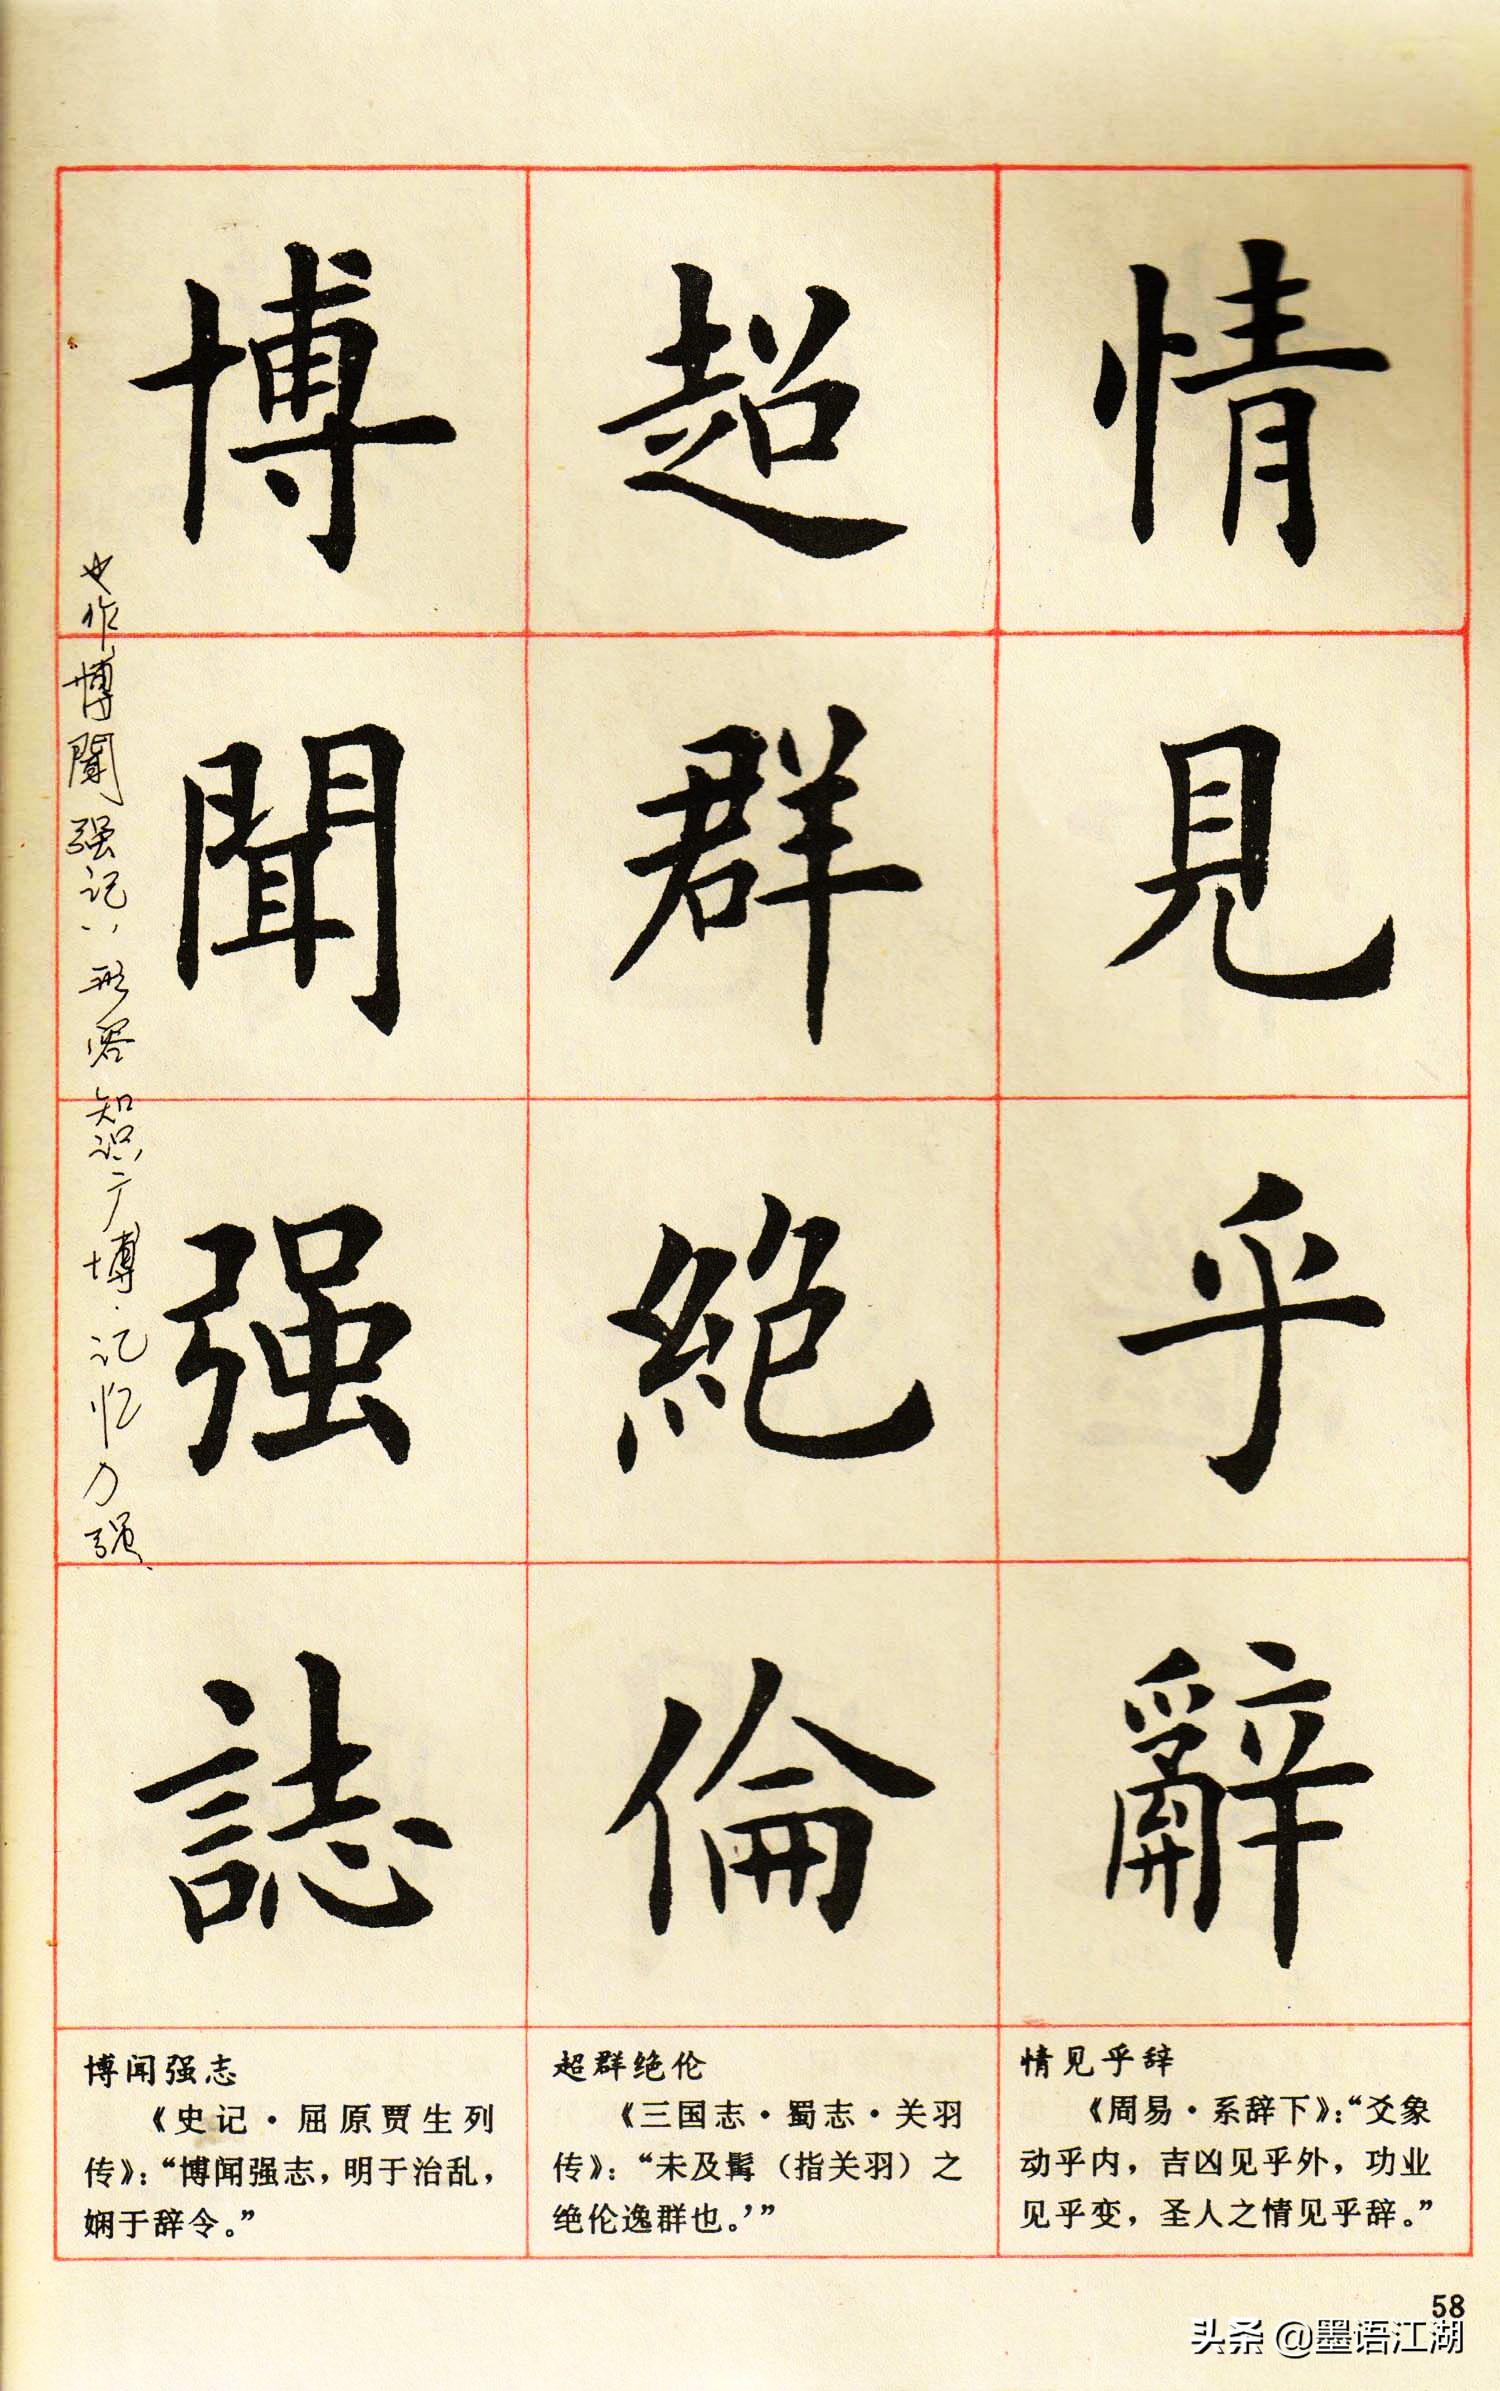 情見乎辭
超群絕倫
博聞强誌
也作博聞强记，形容知识广博，记忆力强
情见乎辞
《周易·系辞下》：“爻象
动乎内，吉凶见乎外，功业
见乎变，圣人之情见乎辞。”
超群绝伦
《三国志·蜀志·关羽
传》：“未及髯（指关羽）之
绝伦逸群也。’”
博闻强志
《史记·屈原贾生列
传》：“博闻强志，明于治乱，
娴于辞令。”
58
头条 @墨语江湖